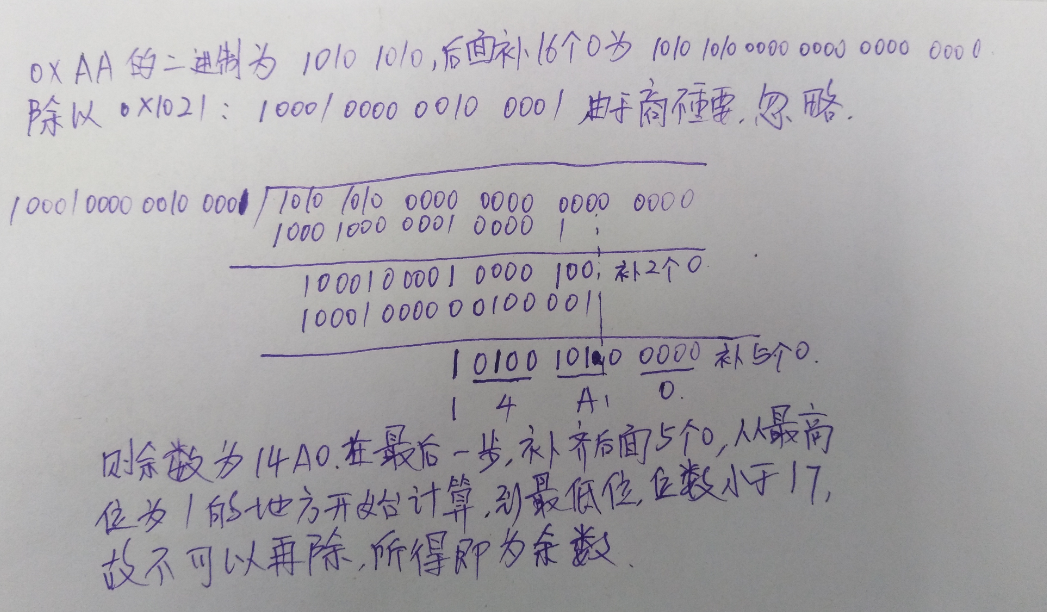 0xAA的二进制为 1010 1010,后面补16个0为 1010 1010 0000 0000 0000 0000.
除以 0x1021: 10001 0000 0010 0001 由于商不重要,忽略.
10001 0000 0010 0001 1010 1010 0000 0000 0000 0000
1000 1000 0001 0000 1
100010 0001 0000 100 补2个0.
10001 0000 00100 001
1 0100 1010 0 0000 补5个0.
1 4 A 0.
则余数为14A0.在最后一步,补齐后面5个0,从最高
位为1的地方开始计算,到最低位,位数小于17,
故不可以再除,所得即为余数.